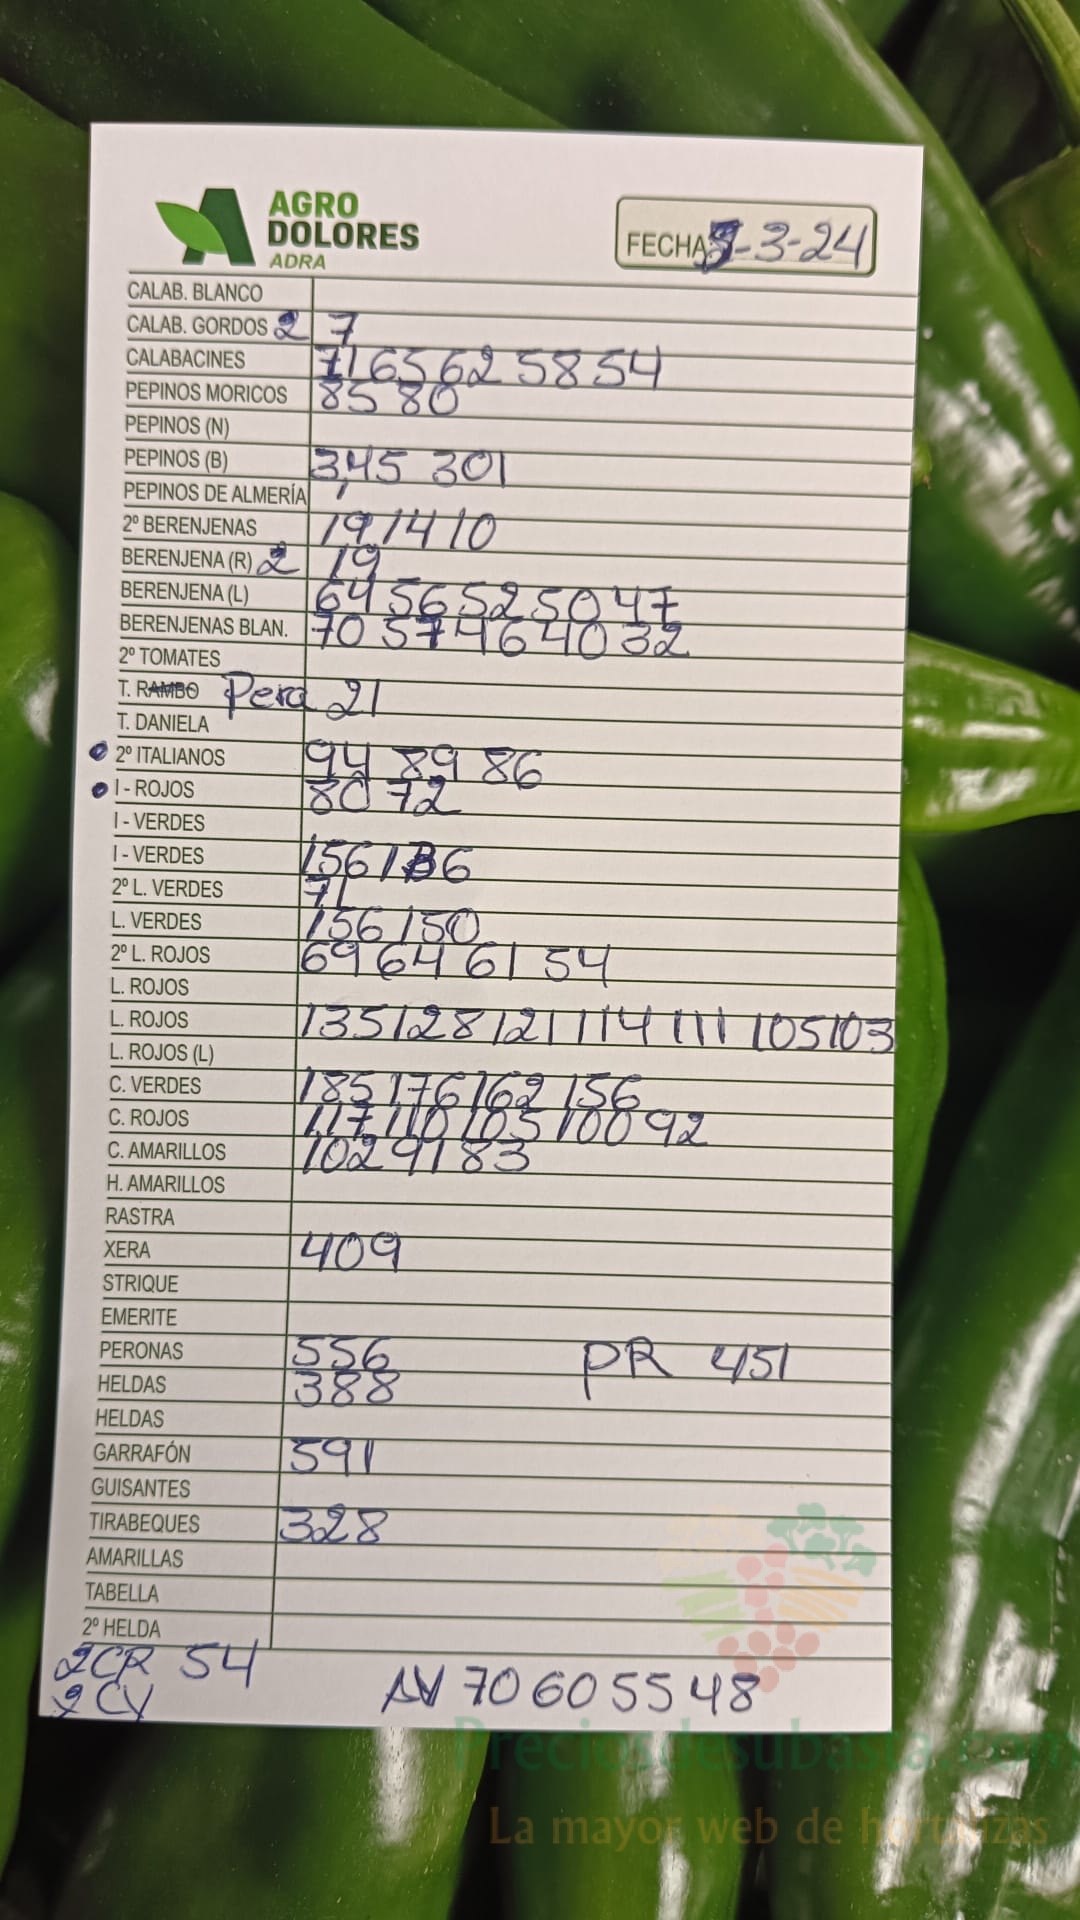 AGRO
DOLORES
ADRA
FECHA 5-3-24
CALAB. BLANCO
CALAB. GORDOS 2 7
CALABACINES 71 65 62 58 54
PEPINOS MORICOS 85 80
PEPINOS (N)
PEPINOS (B) 3,45 301
PEPINOS DE ALMERÍA
2º BERENJENAS 19 14 10
BERENJENA (R) 2 19
BERENJENA (L) 64 56 52 50 47
BERENJENAS BLAN. 70 57 46 40 32
2º TOMATES
T. RAMBO Pera 21
T. DANIELA
2º ITALIANOS 94 89 86
I - ROJOS 80 72
I - VERDES
I - VERDES 156 136
2º L. VERDES 71
L. VERDES 156 150
2º L. ROJOS 69 64 61 54
L. ROJOS
L. ROJOS 135 128 121 114 111 105 103
L. ROJOS (L)
C. VERDES 185 176 162 156
C. ROJOS 117 110 105 100 92
C. AMARILLOS 102 91 83
H. AMARILLOS
RASTRA
XERA 409
STRIQUE
EMERITE
PERONAS 556 PR 451
HELDAS 388
HELDAS
GARRAFÓN 591
GUISANTES
TIRABEQUES 328
AMARILLAS
TABELLA
2º HELDA
2CR 54
2CY AV 70 60 55 48
Preciosdesubasta.com
La mayor web de hortalizas